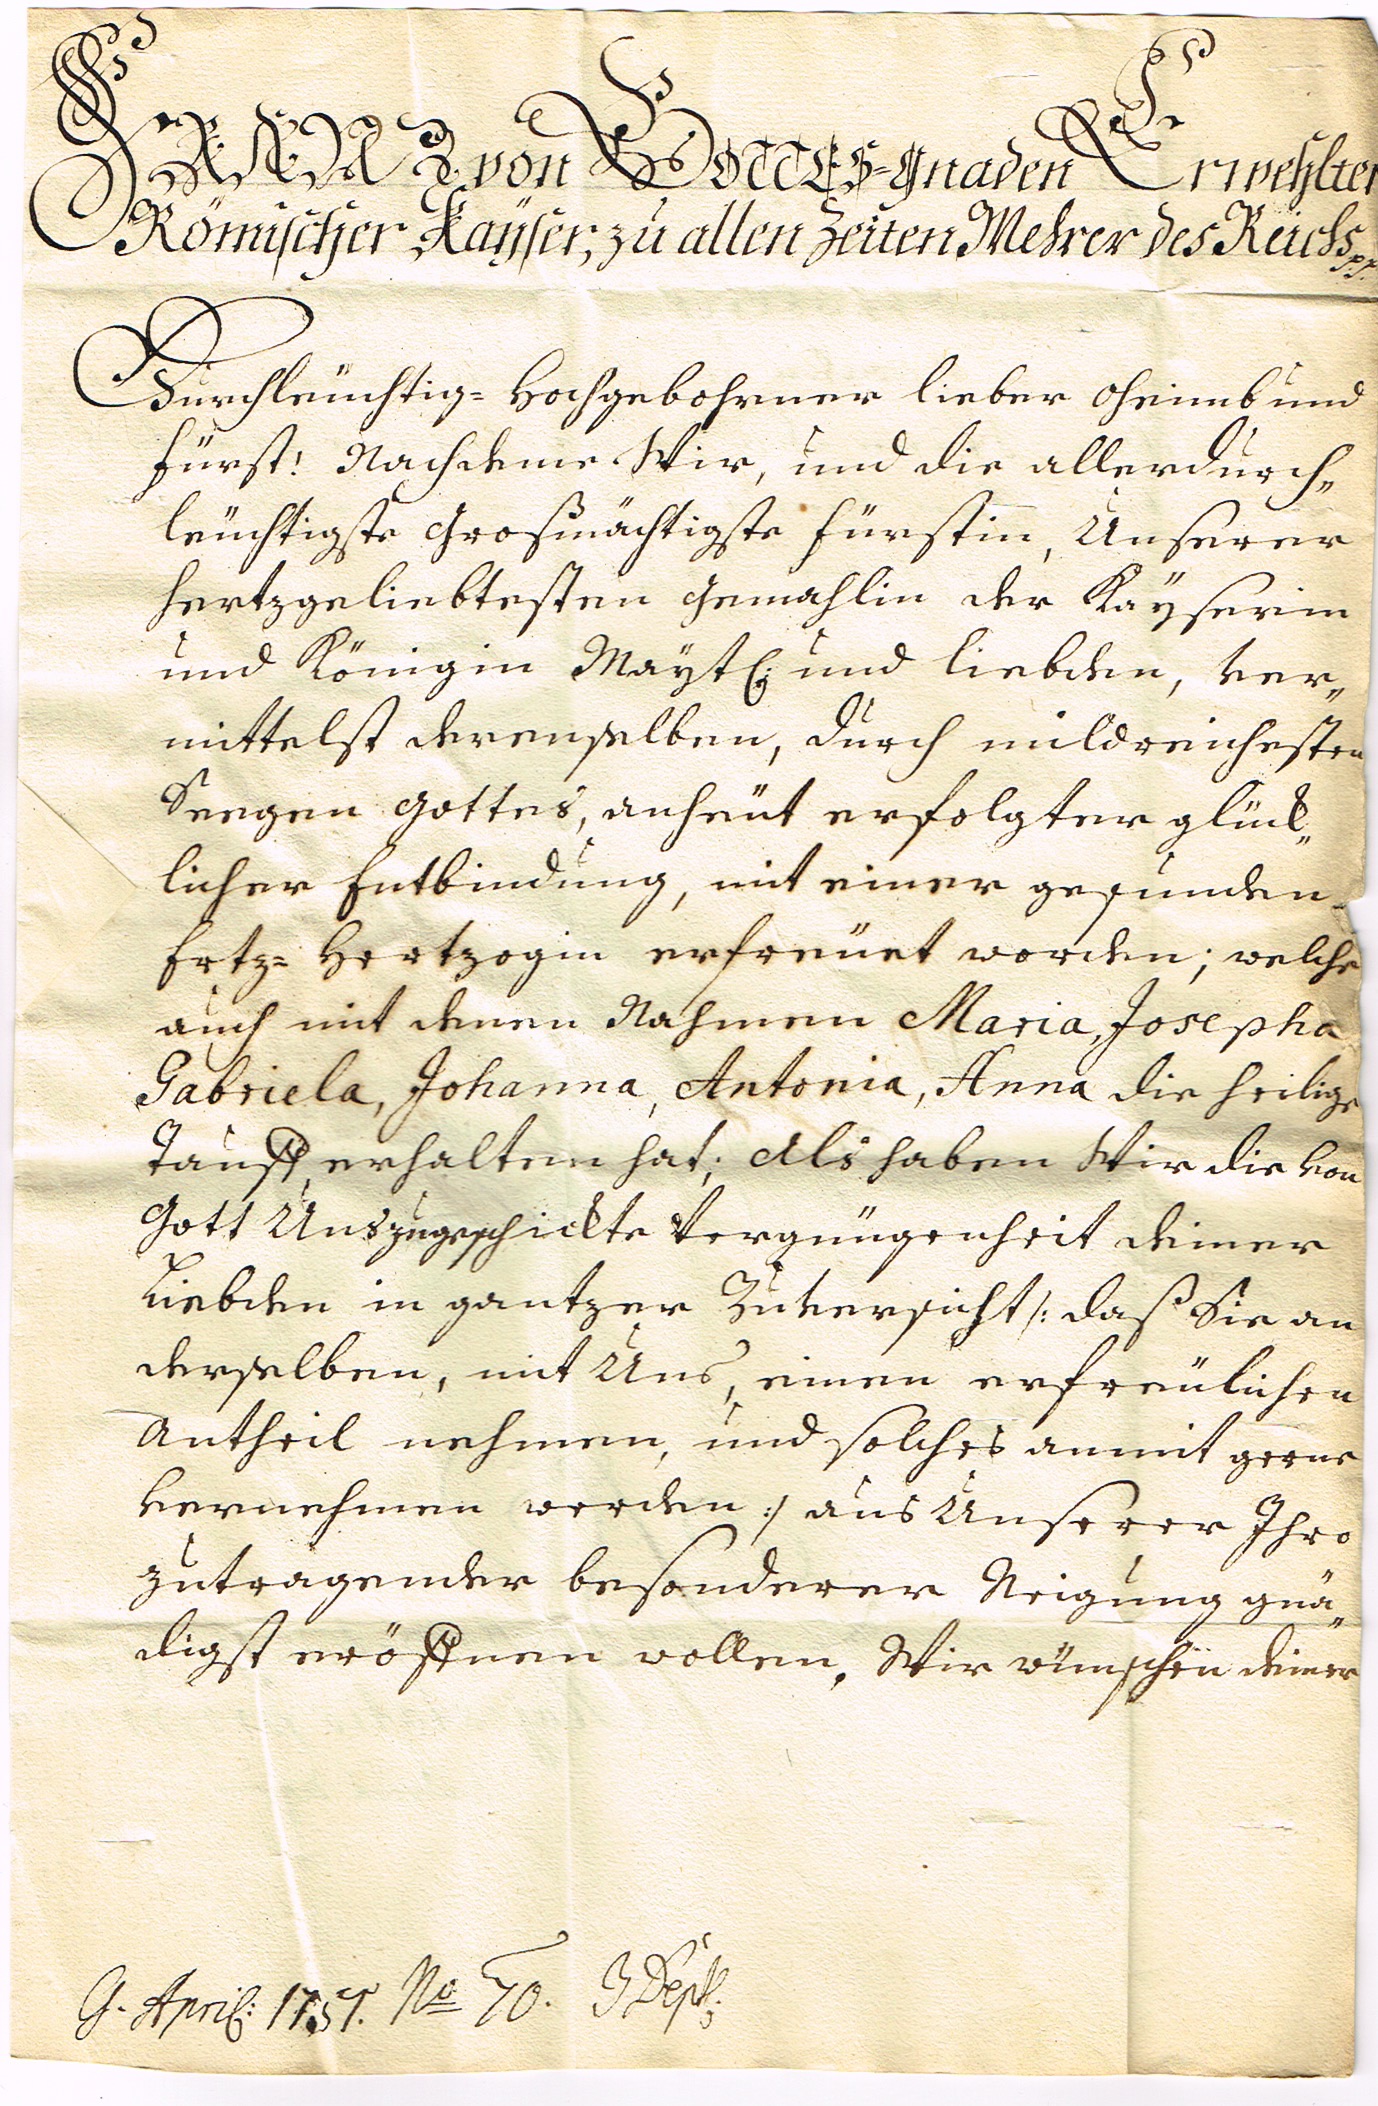 FRANZ von GOTTES-Gnaden Erwehlter
Römischer Kayser, zu allen Zeiten Mehrer des Reichs,
Durchleüchtig= Hochgebohrner lieber Oheimb und
Fürst! Nachdeme Wir, und die allerdurch„
leüchtigste Großmächtigste Fürstin, Unserer
hertzgeliebtesten Gemahlin der Kayserin
und Königin Mayt. und Liebden, ver„
mittelst derenselben, durch mildreichesten
Seegen Gottes, anheüt erfolgter glück„
licher Entbindung, mit einer gesunden
Ertz= Hertzogin erfreüet worden; welche
auch mit denen Nahmen Maria, Josepha
Gabriela, Johanna, Antonia, Anna die heilige
Tauff, erhalten hat; Als haben Wir die von
Gott Uns zugeschickte Vergnügenheit deiner
Liebden in gantzer Zuversicht /: daß Sie an
derselben, mit Uns, einen erfreülichen
Antheil nehmen, und solches anmit gerne
vernehmen werden :/ aus Unserer Ihro
zutragender besonderer Neigung gnä„
digst eröffnen wollen. Wir wünschen deiner
April: 1751. No 70.